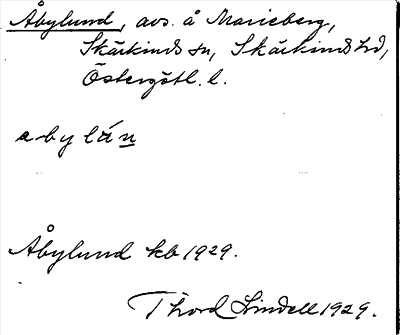 Åbylund, avs. å Marieberg,
Skärkinds sn, Skärkinds hd,
Östergötl. l.
abylún
Åbylund kb 1929.
Thord Lindell 1929.